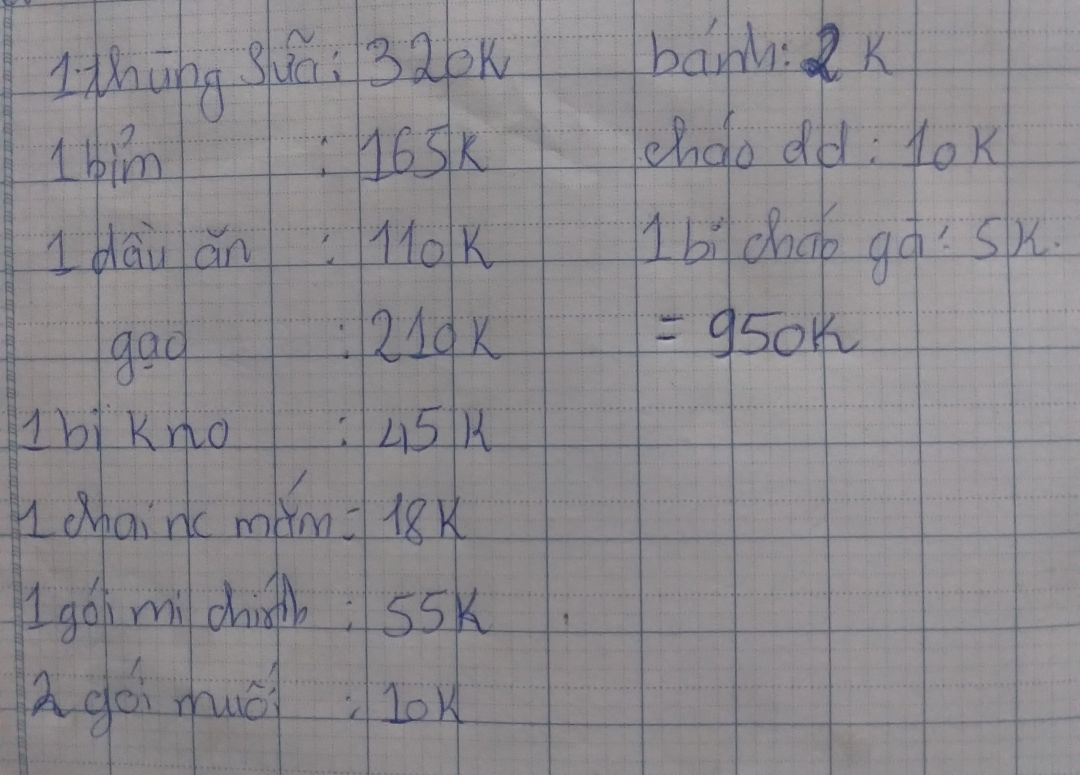 1 thùng sữa: 320K
1 bỉm : 165K
1 dầu ăn : 110K
gạo : 210K
1 bị kno : 45K
1 chai nc mắm: 18K
1 gói mì chính : 55K
2 gói muối : 10K
bánh: 2K
cháo dd : 10K
1 bị cháo gà: 5K.
= 950K